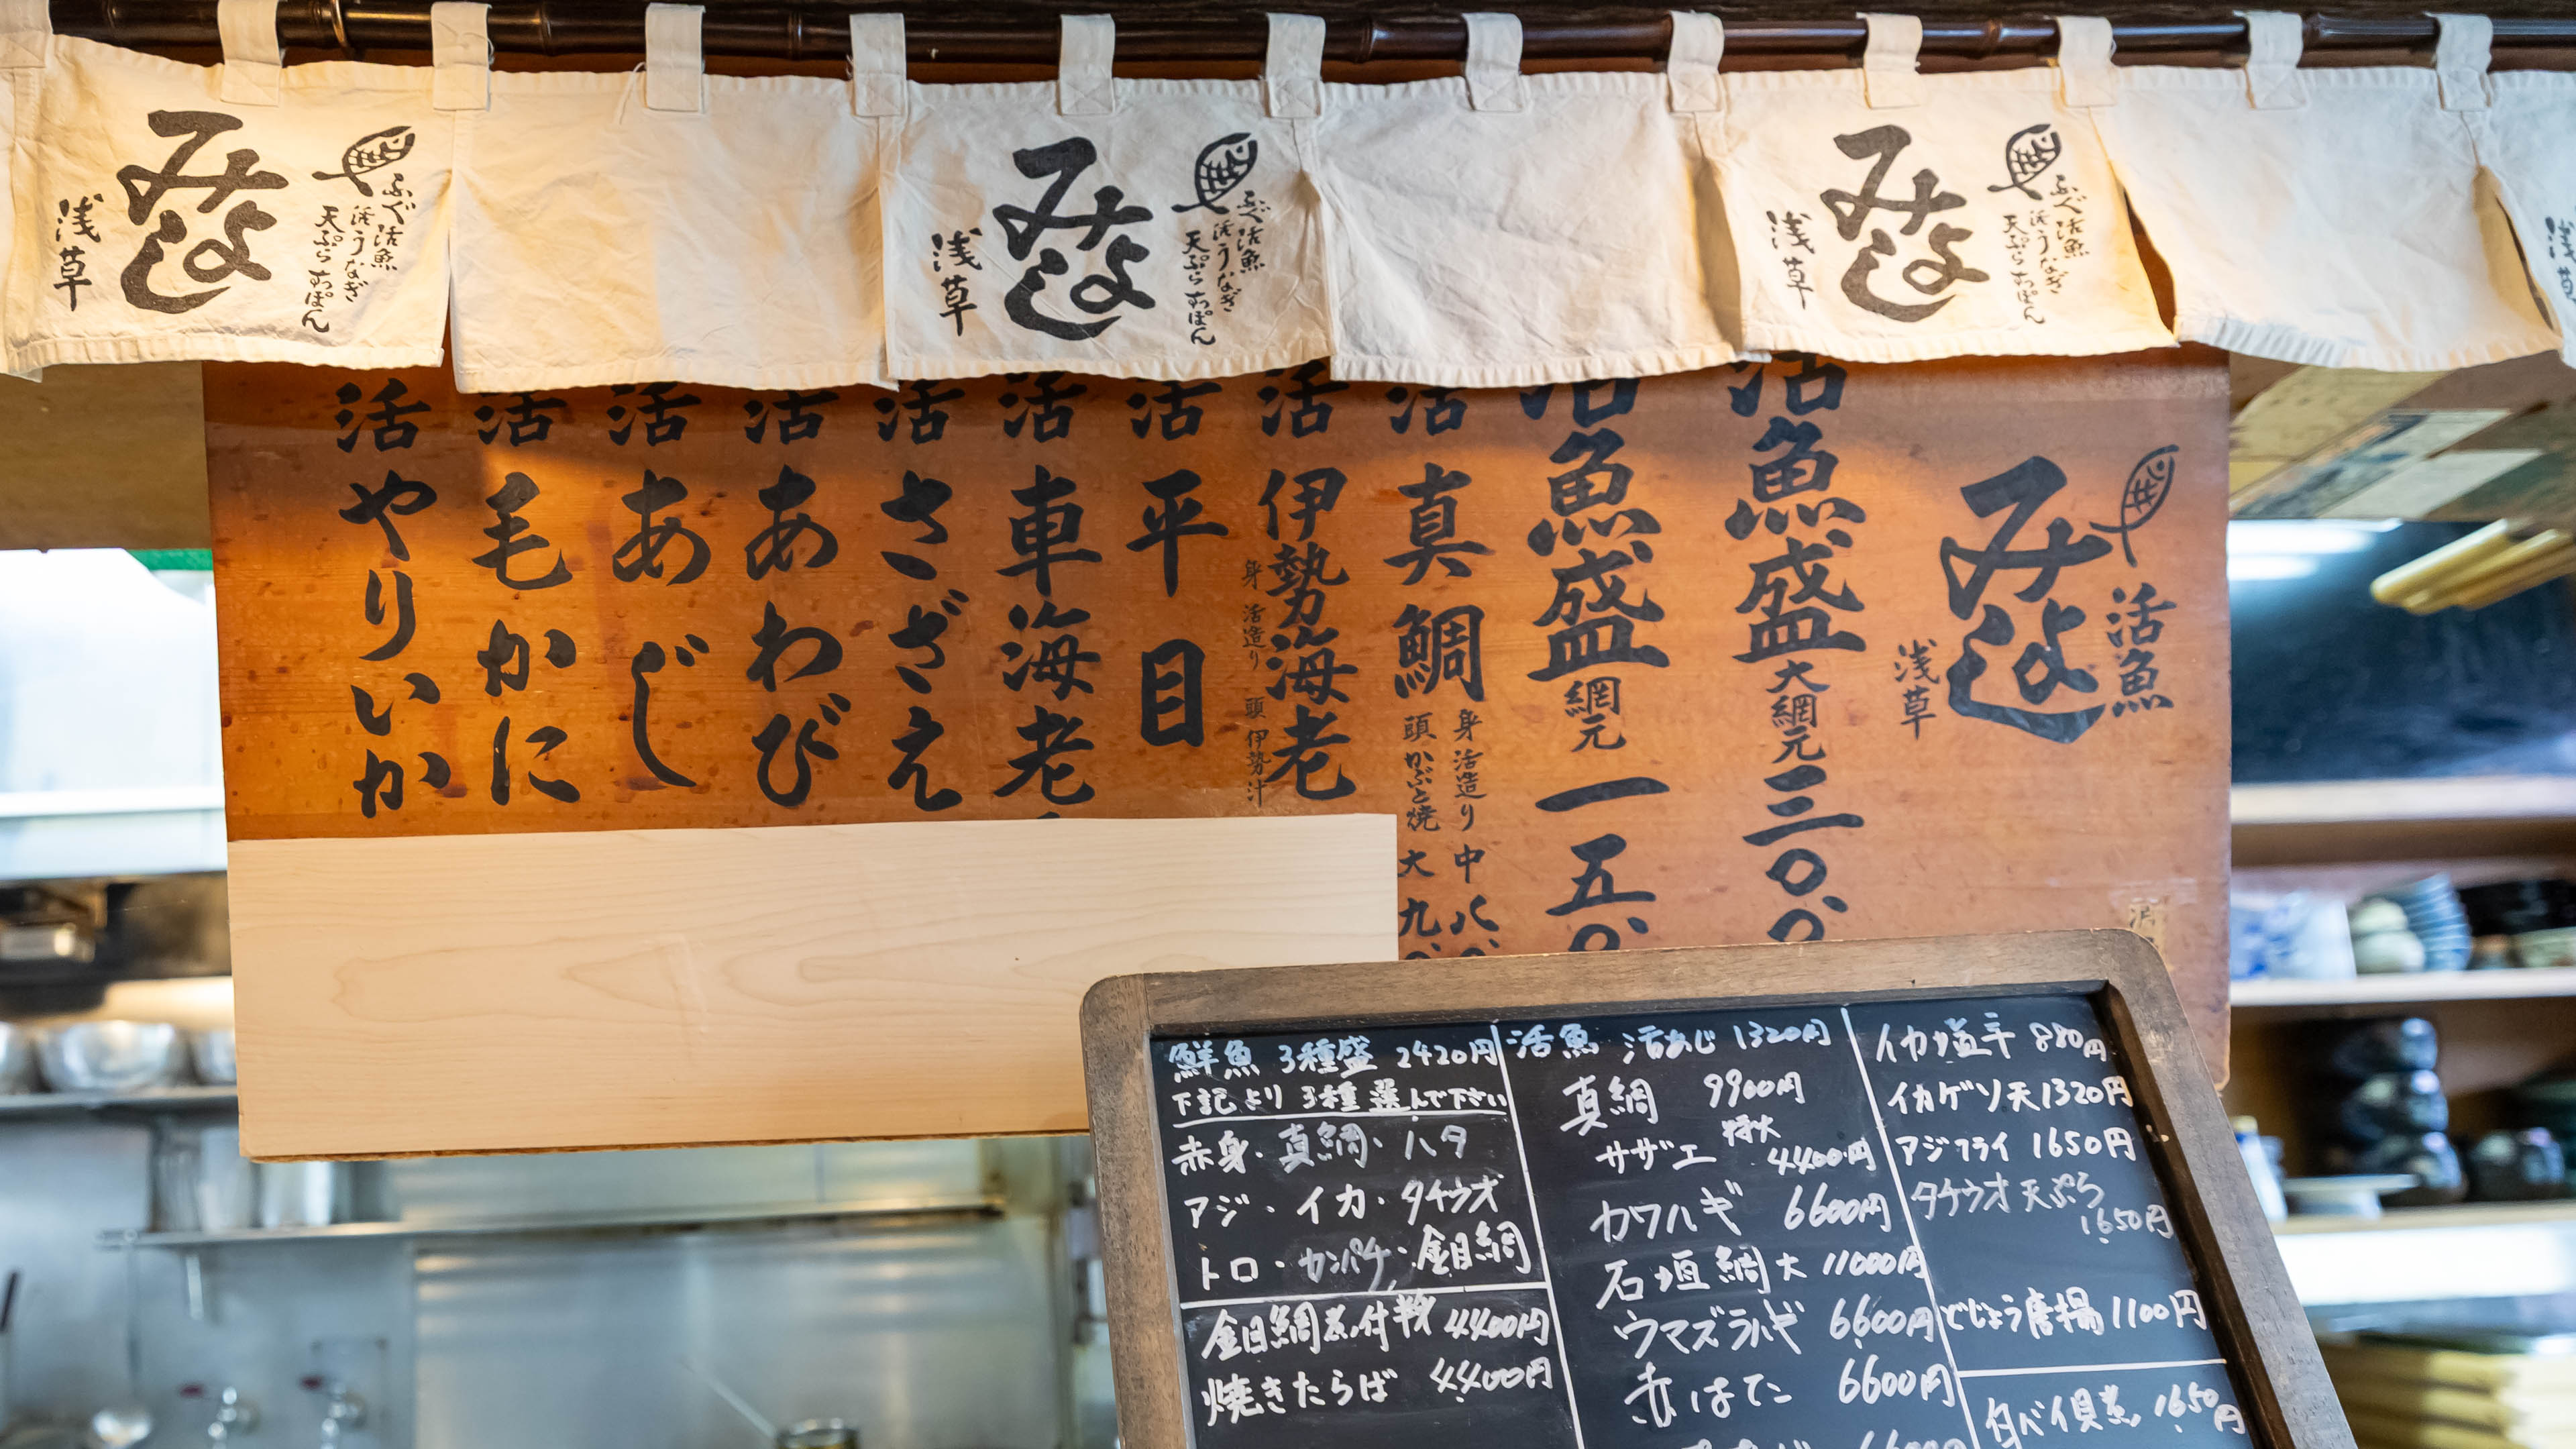 みよし
ふぐ活魚
活うなぎ
天ぷらすっぽん
浅草
みよし
ふぐ活魚
活うなぎ
天ぷらすっぽん
浅草
みよし
ふぐ活魚
活うなぎ
天ぷらすっぽん
浅草
浅草
活魚
みよし
浅草
活魚盛大網元三〇、〇
活魚盛網元一五、〇
活真鯛
身活造り中八〇、〇
頭かぶと焼大九、〇
活伊勢海老
身活造り頭伊勢汁
活平目
活車海老
活さざえ
活あわび
活あじ
活毛かに
活やりいか
鮮魚 3種盛 2420円
下記より 3種選んで下さい
赤身・真鯛・ハタ
アジ・イカ・タチウオ
トロ・カンパチ・金目鯛
金目鯛煮付 4400円
焼きたらば 4400円
活魚 活あじ 1320円
真鯛 9900円
特大
サザエ 4400円
カワハギ 6600円
石垣鯛大 11000円
ウマズラハギ 6600円
赤はてこ 6600円
イカ塩辛 880円
イカゲソ天 1320円
アジフライ 1650円
タチウオ天ぷら
1650円
どじょう唐揚 1100円
白バイ貝煮 1650円